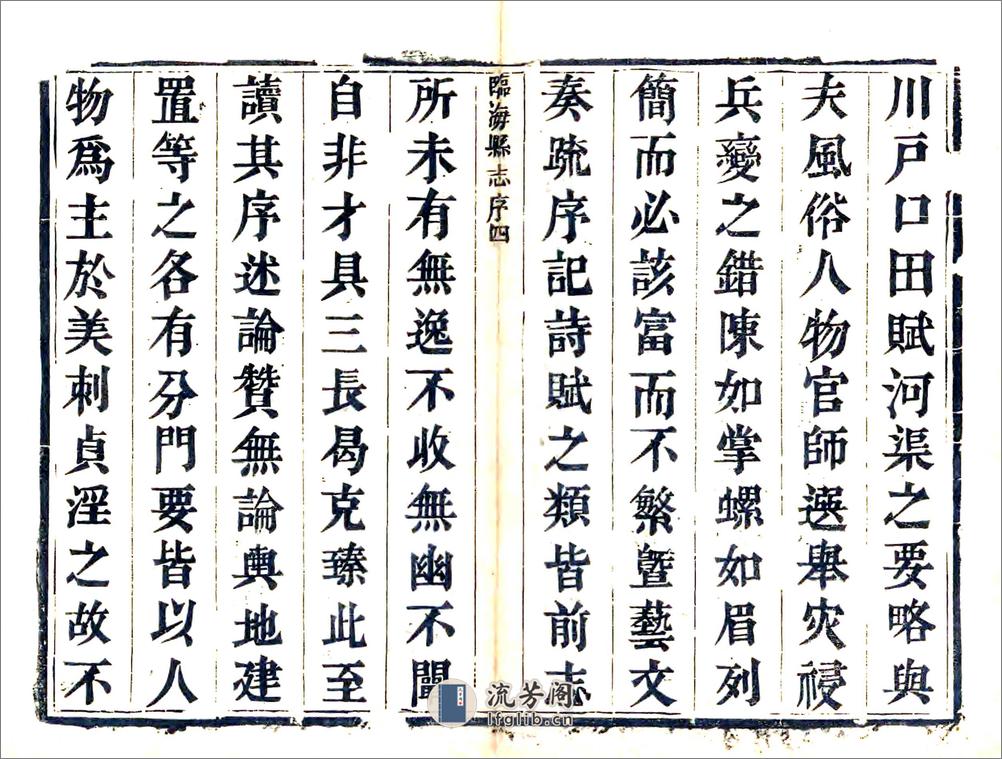 川戸口田賦河渠之要略與
夫風俗人物官師選舉灾祲
兵變之錯陳如掌螺如眉列
簡而必該富而不繁曁藝文
奏疏序記詩賦之類皆前志
臨海縣志序四
所未有無逸不收無幽不闡
自非才具三長曷克臻此至
讀其序述論贊無論輿地建
置等之各有分門要皆以人
物爲主於美刺貞淫之故不
流芳阁
lfglib.cn